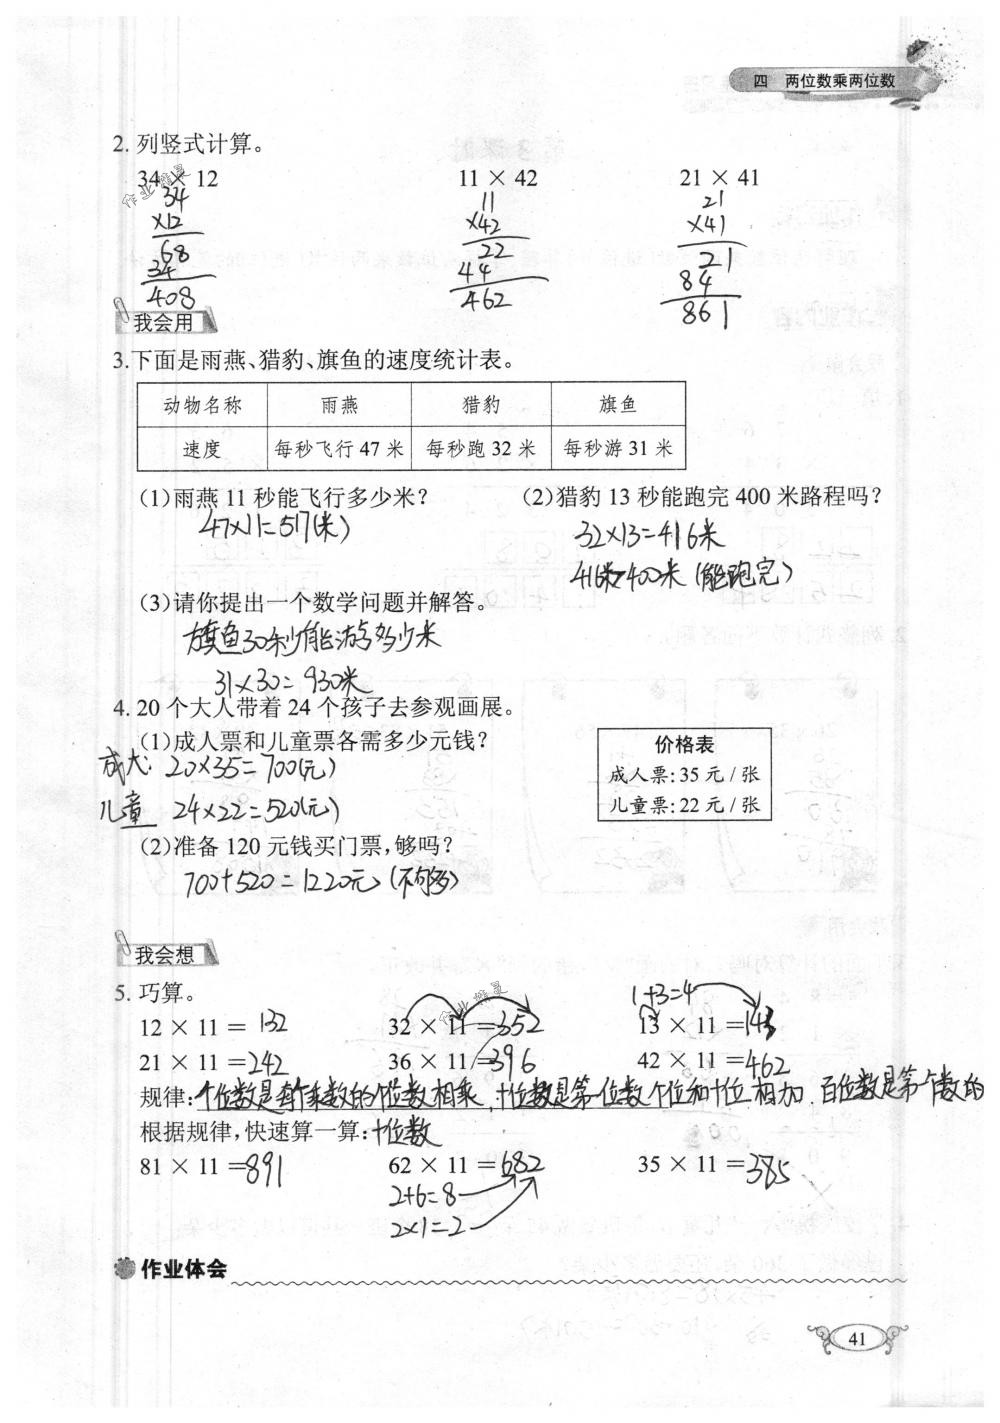 四 两位数乘两位数
2. 列竖式计算。
34 × 12 11 × 42 21 × 41
34 11 21
×12 ×42 ×41
68 22 21
34 44 84
408 462 861
作业精灵
我会用
3.下面是雨燕、猎豹、旗鱼的速度统计表。
动物名称 雨燕 猎豹 旗鱼
速度 每秒飞行 47 米 每秒跑 32 米 每秒游 31 米
(1)雨燕 11 秒能飞行多少米? (2)猎豹 13 秒能跑完 400 米路程吗?
47×11=517(米) 32×13=416米
416米>400米 (能跑完)
(3)请你提出一个数学问题并解答。
旗鱼30秒能游多少米
31×30=930米
4. 20 个大人带着 24 个孩子去参观画展。
(1)成人票和儿童票各需多少元钱?
成人: 20×35=700(元)
儿童 24×22=520(元)
价格表
成人票: 35 元 / 张
儿童票: 22 元 / 张
(2)准备 120 元钱买门票,够吗?
700+520=1220元 (不够)
我会想
5. 巧算。
作业精灵
1+3=4
12 × 11 = 132 32 × 11 =352 13 × 11 =143
21 × 11 =242 36 × 11 =396 42 × 11 =462
规律:个位数是两个乘数的个位数相乘,十位数是第一位数个位和十位相加,百位数是第一个数的
根据规律,快速算一算:十位数
81 × 11 =891 62 × 11 =682 35 × 11 =385
2+6=8
2×1=2
作业体会
41